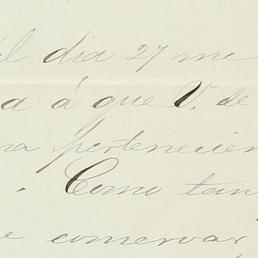 el dia 27 me
a á que V. de
na pertenecien
. Como tan
e conservar